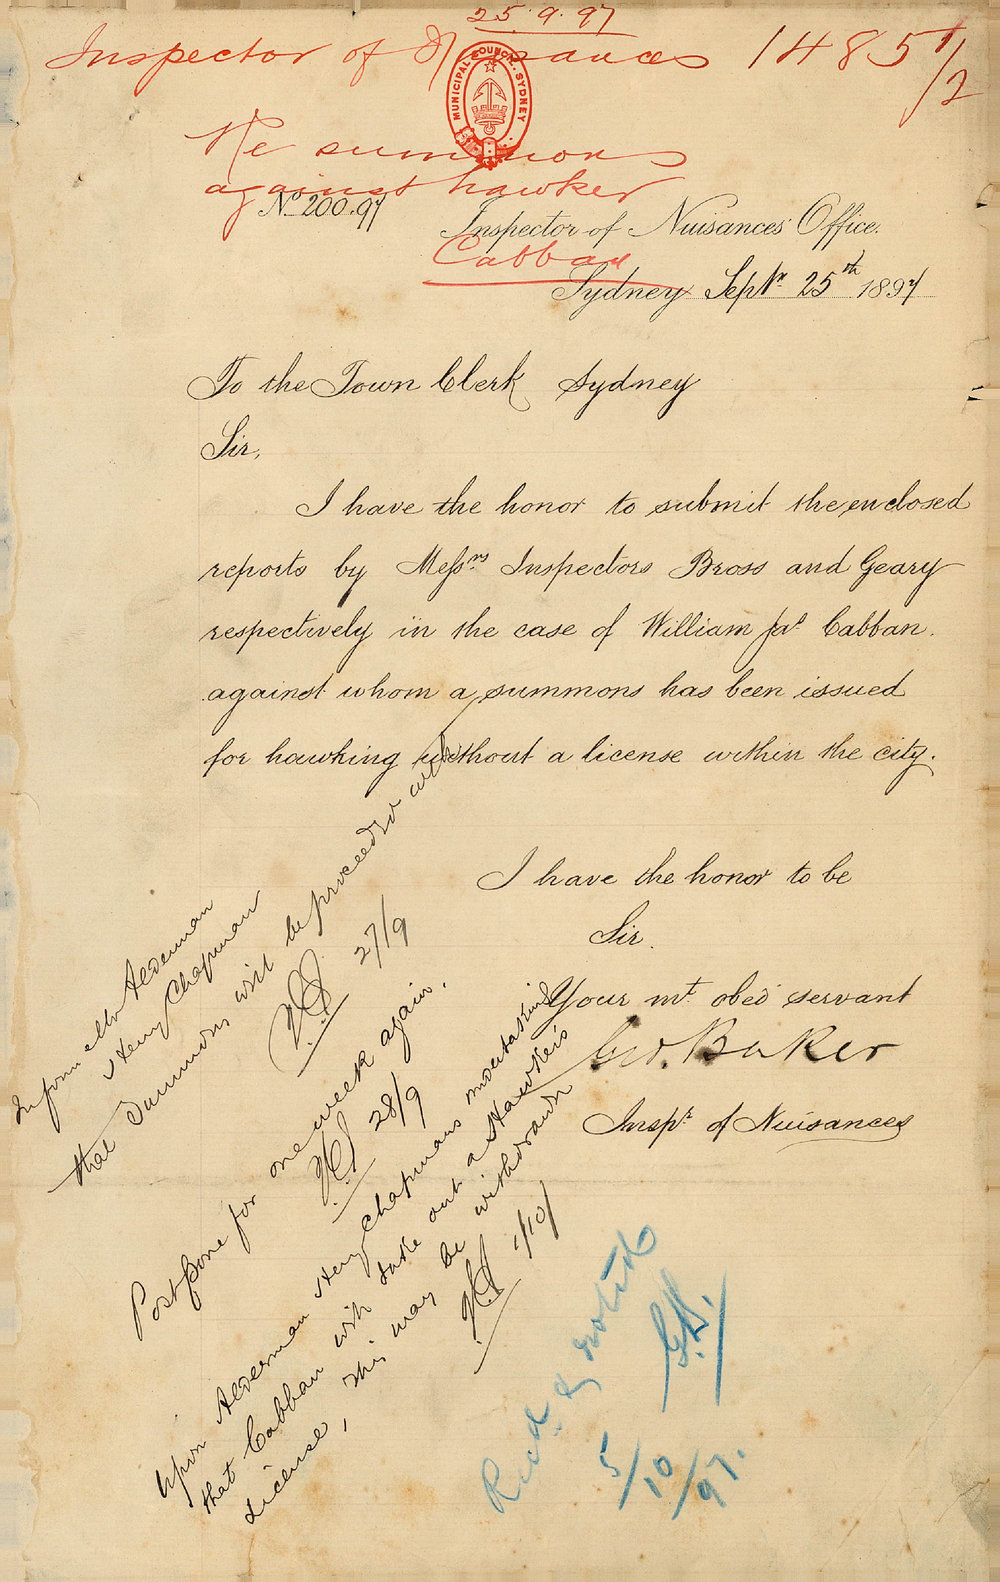 25.9.97
Inspector of Nuisances 1485 1/2
MUNICIPAL COUNCIL. SYDNEY
Re summons
against hawker
Cabban
No 200.97
Inspector of Nuisances' Office.
Sydney Septr 25th 1897
To the Town Clerk Sydney
Sir,
I have the honor to submit the enclosed
reports by Messrs Inspectors Bross and Geary
respectively in the case of William Jas Cabban.
against whom a summons has been issued
for hawking without a license within the city.
I have the honor to be
Sir.
Your mt. obed servant
Geo. Baker
Inspr of Nuisances
Inform Mr Alderman
Henry Chapman
that summons will be proceeded with
27/9
Postpone for one week again.
28/9
Upon Alderman Henry Chapmans undertaking
that Cabban will take out a Hawker's
License, this may be withdrawn
1/10/
Recd. & noted
G.B.
5/10/97.